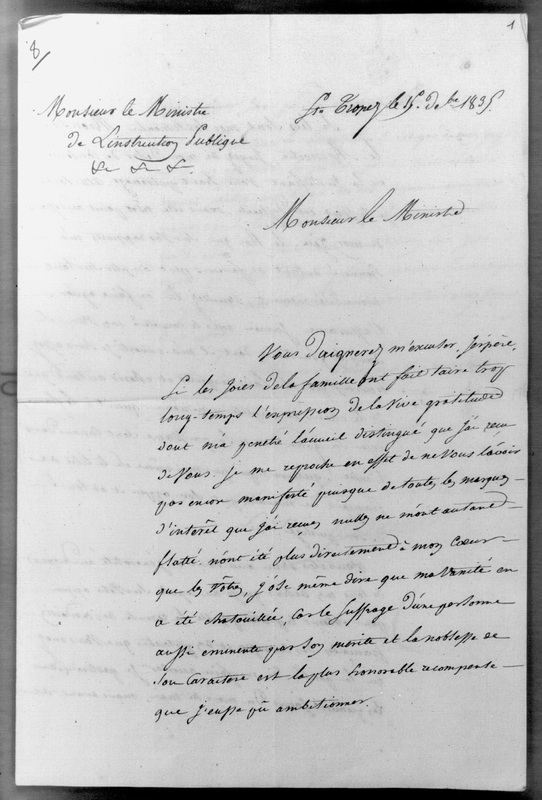 8/
1
Monsieur le Ministre
de L'instruction Publique
&c &c &c.
St. Tropez le 15. Xbre 1835
Monsieur le Ministre
Vous Daignerez m'excuser, j'espère,
Si les joies de la famille ont fait taire trop
long-temps l'expression de la Vive gratitude
dont m'a penetré l'accueil distingué que j'ai reçu
de Vous. je me reproche en effet de ne Vous l'avoir
pas encor manifesté puisque de toutes les marques
d'intérêt que j'ai reçues nulles ne m'ont autant
flatté n'ont été plus directement à mon Cœur
que les Vôtres, j'ose même dire que ma Vanité en
a été chatouillée, Car le Suffrage d'une personne
aussi éminente par Son mérite et la noblesse de
Son Caractere est la plus honorable recompense
que j'eusse pû ambitionner.